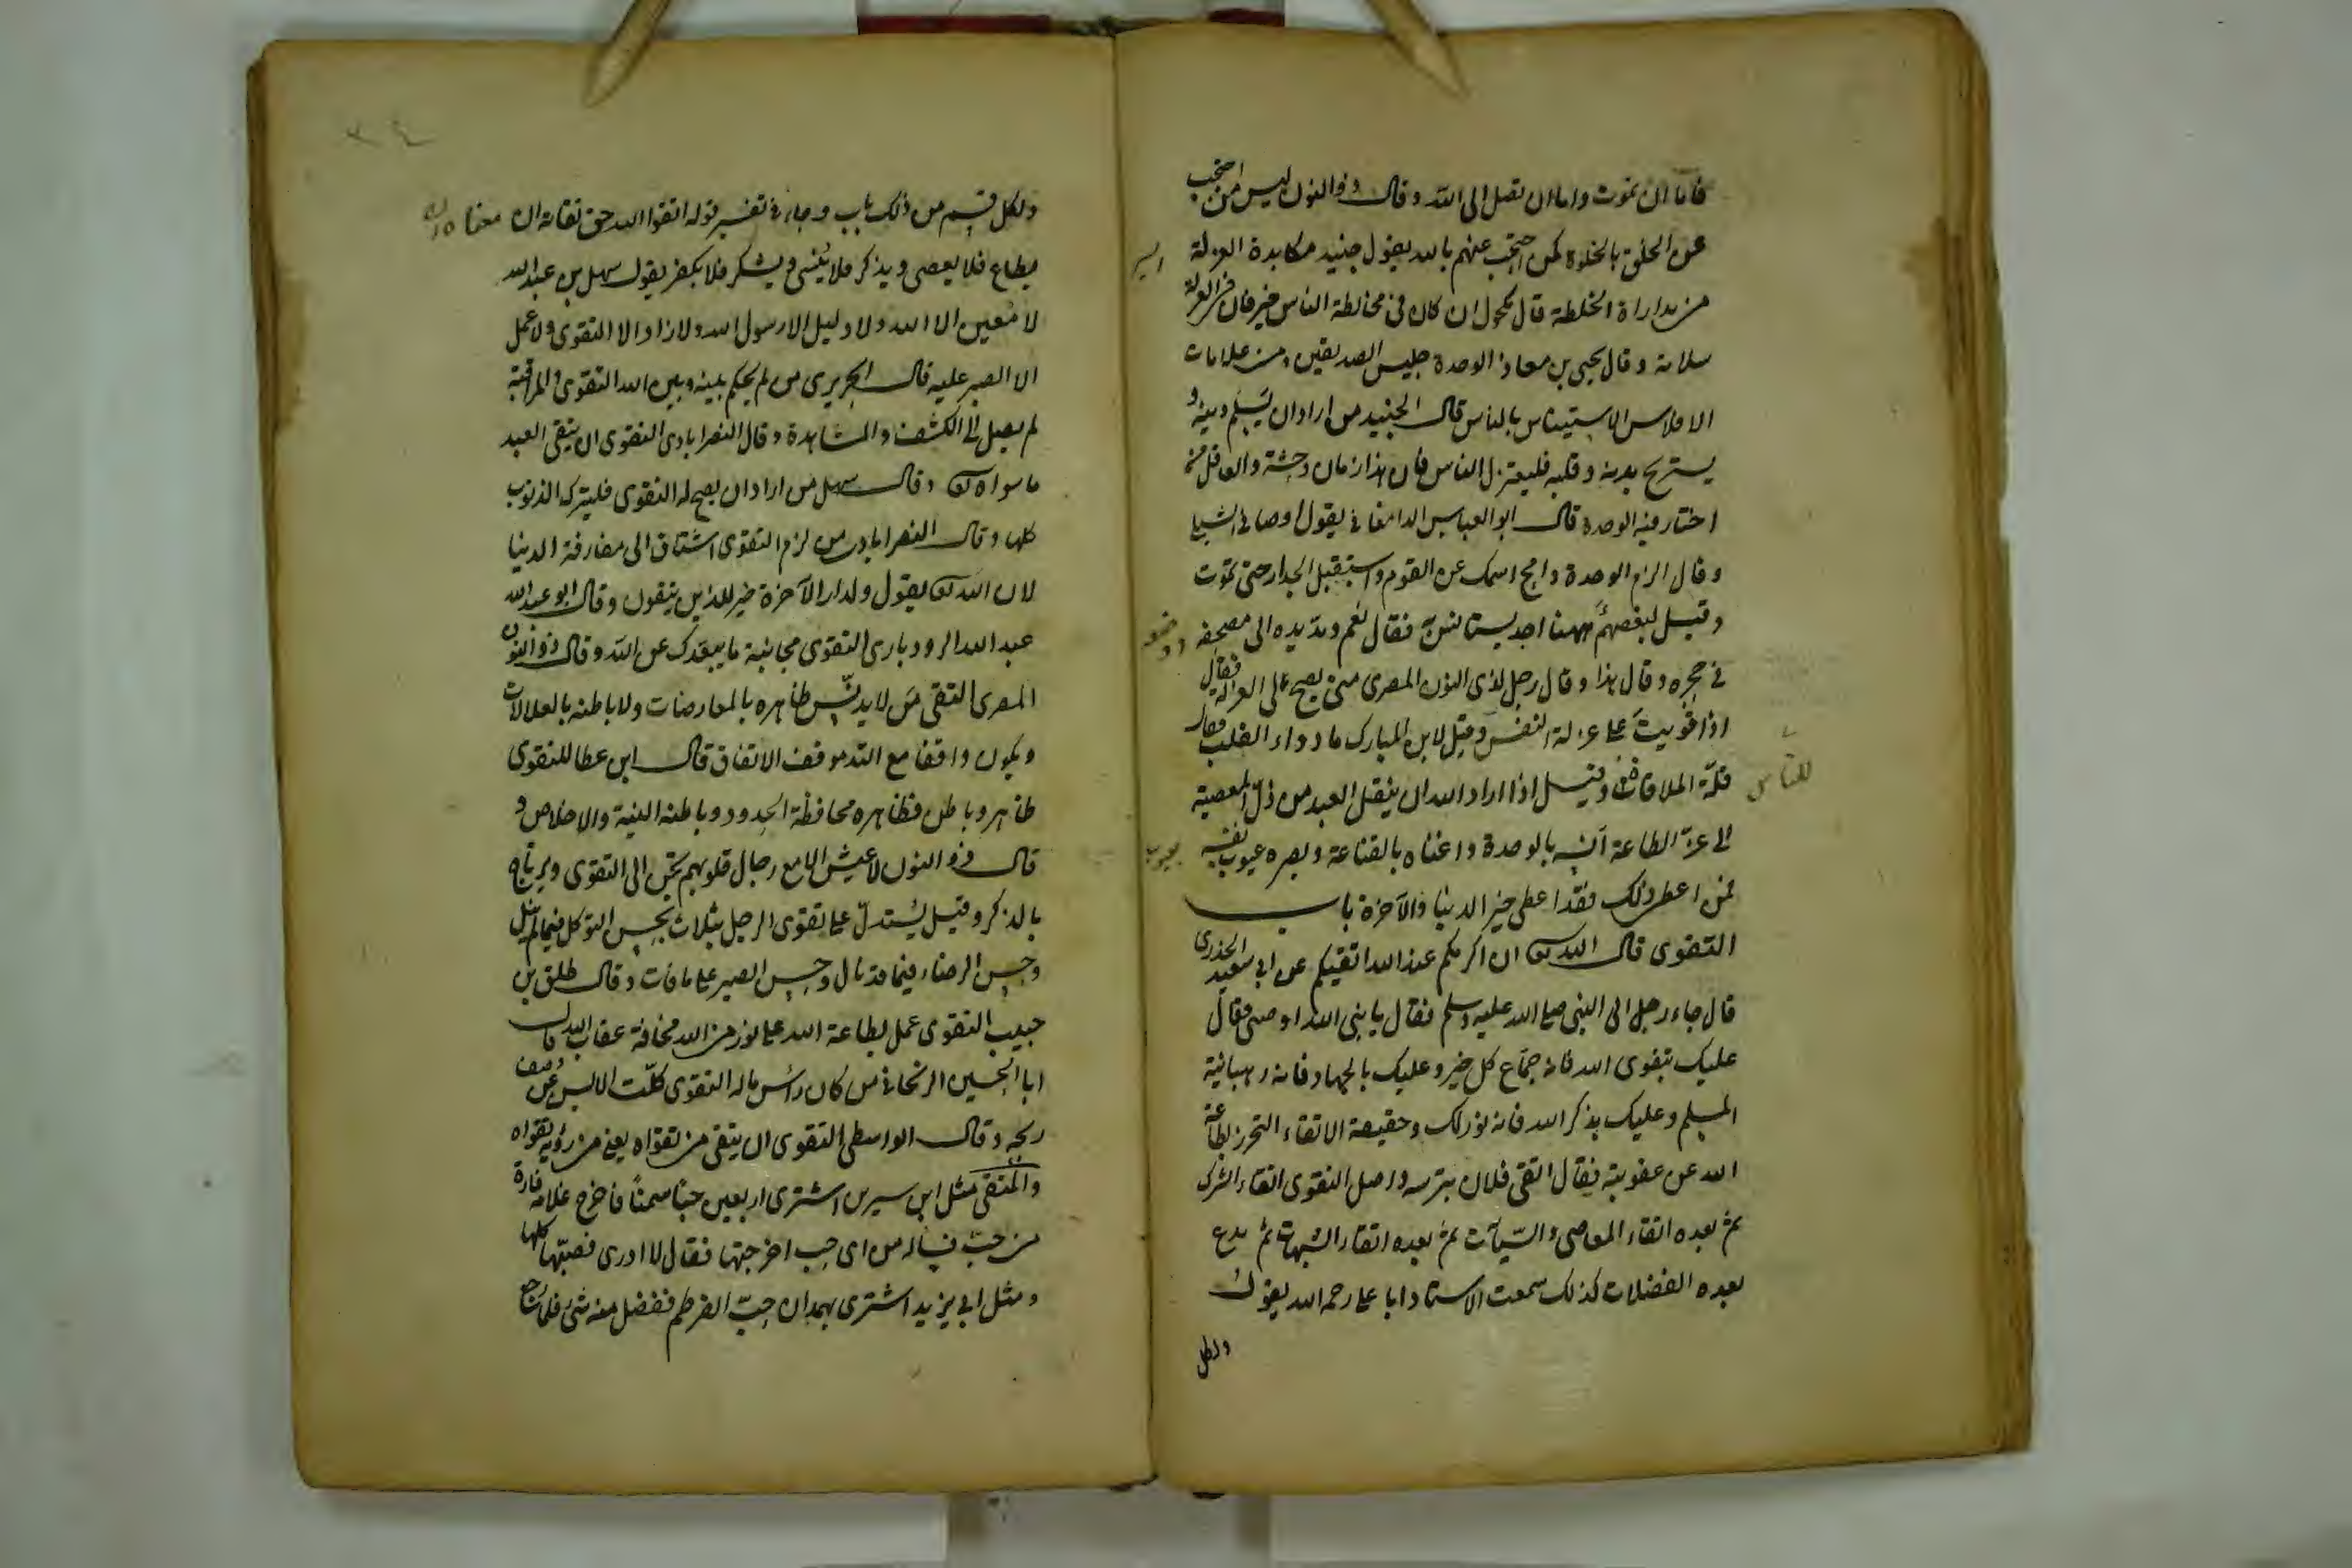 فاما ان تموت واما ان تصل الى الله وقال ذو النون ليس من احتجب
عن الخلق بالخلوة كمن احتجب عنهم بالله يقول جنيد مكابدة العزلة ايسر
من مداراة الخلطة قال مكحول ان كان في مخالطة الناس خير فان في العزلة
سلامة وقال يحيى بن معاذ الوحدة جليس الصديقين ومن علامات
الافلاس الاستيناس بالناس قال الجنيد من اراد ان يسلم دينه و
يستريح بدنه وقلبه فليعتزل الناس فان هذا زمان وحشة والعاقل من
اختار فيه الوحدة قال ابو العباس الدامغاني يقول اوصاني الشبلي
وقال الزم الوحدة وامح اسمك عن القوم واستقبل الجدار حتى تموت
وقيل لبعضهم ههنا احد يستانس به فقال نعم ومد يده الى مصحفه ووضعه
في حجره وقال هذا وقال رجل لذي النون المصري متى يصح لي العزلة فقال
اذا قويت على عزلة النفس وقيل لابن المبارك ما دواء القلب فقال
قلة الملاقات للناس وقيل اذا اراد الله ان ينقل العبد من ذل المعصية
الى عز الطاعة آنسه بالوحدة واغناه بالقناعة وبصره عيوب نفسه
فمن اعطي ذلك فقد اعطي خير الدنيا والآخرة باب
التقوى قال الله تع ان اكرمكم عند الله اتقيكم عن ابي سعيد الخدري
قال جاء رجل الى النبي صلى الله عليه وسلم فقال يا نبي الله اوصني فقال
عليك بتقوى الله فانه جماع كل خير وعليك بالجهاد فانه رهبانية
المسلم وعليك بذكر الله فانه نور لك وحقيقة الاتقاء التحرز بطاعة
الله عن عقوبته يقال اتقى فلان بترسه واصل التقوى اتقاء الشرك
ثم بعده اتقاء المعاصي والسيآت ثم بعده اتقاء الشبهات ثم يدع
بعده الفضلات كذلك سمعت الاستاد ابا علي رحمه الله يقول
ولكل
ولكل قسم من ذلك باب وجاء في تفسير قوله اتقوا الله حق تقاته ان معناه ان
يطاع فلا يعصى ويذكر فلا ينسى ويشكر فلا يكفر يقول سهل بن عبد الله
لا معين الا الله ولا دليل الا رسول الله ولا زاد الا التقوى ولا عمل
الا الصبر عليه قال الجريري من لم يحكم بينه وبين الله التقوى والمراقبة
لم يصل الى الكشف والمشاهدة وقال النصرابادي التقوى ان يتقي العبد
ما سواه تع وقال سهل من اراد ان يصح له التقوى فليترك الذنوب
كلها وقال النصرابادي من لزم التقوى اشتاق الى مفارقة الدنيا
لان الله تع يقول ولدار الآخرة خير للذين يتقون وقال ابو عبد الله
عبد الله الرودباري التقوى مجانبة ما يبعدك عن الله وقال ذو النون
المصري التقي من لا يدنس ظاهره بالمعارضات ولا باطنه بالعلالات
ويكون واقفا مع الله موقف الاتفاق قال ابن عطا للتقوى
ظاهر وباطن فظاهره محافظة الحدود وباطنه النية والاخلاص و
قال ذو النون لا عيش الا مع رجال قلوبهم تحن الى التقوى وترتاح
بالذكر وقيل يستدل على تقوى الرجل بثلاث بحسن التوكل فيما لم ينل
وحسن الرضاء فيما قد نال وحسن الصبر على ما فات وقال طلق بن
حبيب التقوى عمل بطاعة الله على نور من الله مخافة عقاب الله قال
ابا الحسين الزنجاني من كان راس ماله التقوى كلت الالسن عن وصف
ربحه وقال الواسطي التقوى ان يتقي من تقواه يعني من رؤية تقواه
والمتقي مثل ابن سيرين اشترى اربعين حبا سمنا فاخرج غلامه فارة
من حب فساله من اي حب اخرجتها فقال لا ادري فصبها كلها
ومثل ابي يزيد اشترى بهمدان حب القرطم ففضل منه شئ فلما رجع